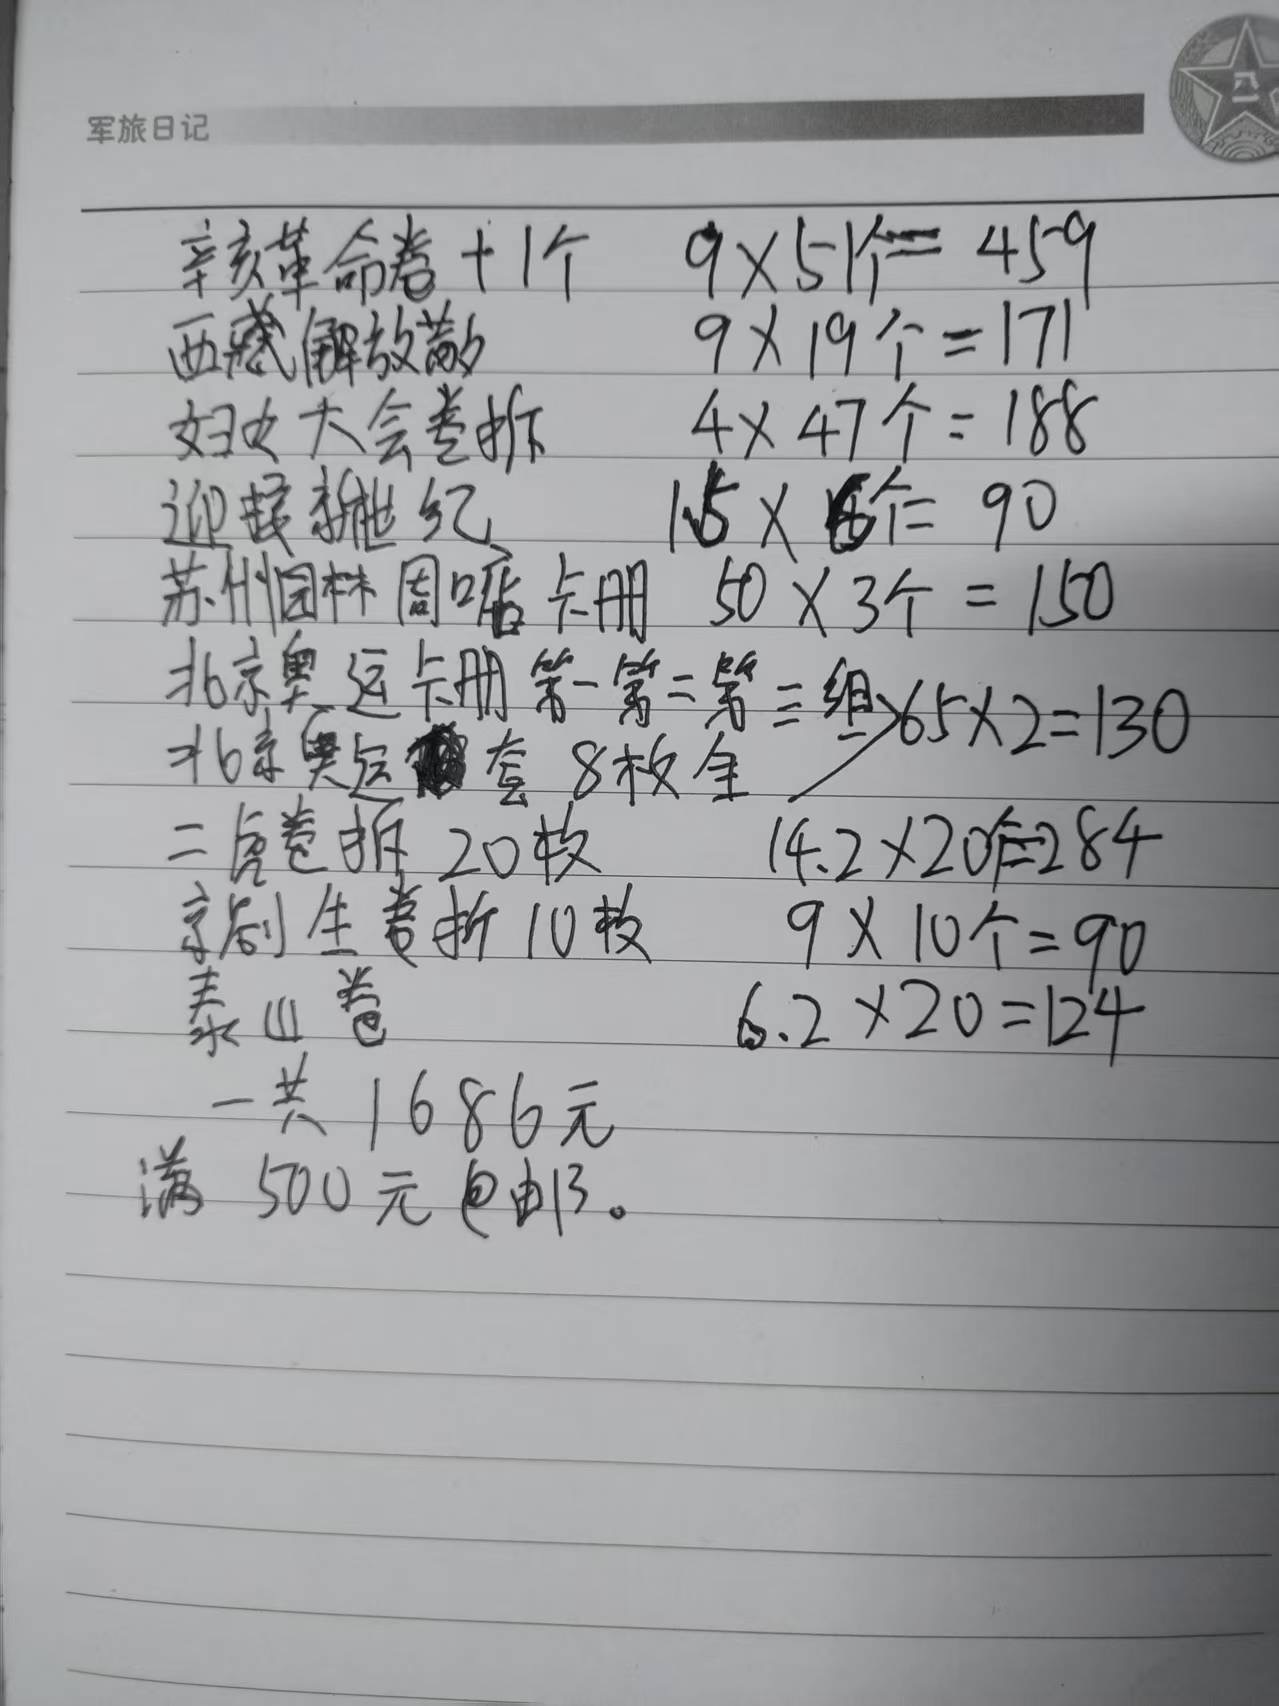 军旅日记
八一
辛亥革命卷+1个 9×51个=459
西藏解放散 9×19个=171
妇女大会卷拆 4×47个=188
迎接新世纪 15×6个=90
苏州园林周口店卡册 50×3个=150
北京奥运卡册第一第二第三组
65×2=130
北京奥运套8枚全
二虎卷拆20枚 14.2×20个=284
京剧生卷拆10枚 9×10个=90
泰山卷 6.2×20=124
一共1686元
满500元包邮。